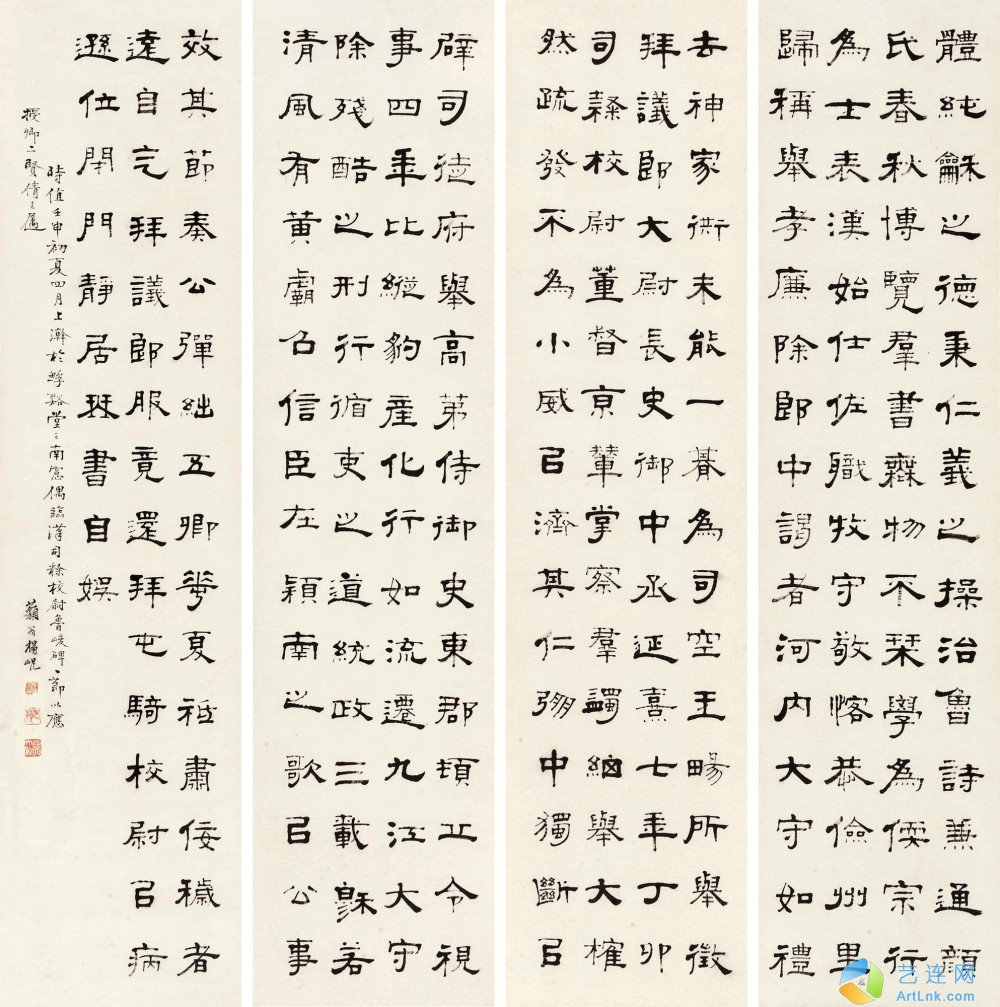 體純龢之德秉仁義之操治魯詩兼通顏
氏春秋博覽羣書無物不栞學為儒宗行
為士表漢始仕佐職牧守敬恪恭儉州里
歸稱舉孝廉除郎中謁者河內大守如禮
去神家衖未能一朞為司空王暢所舉徵
拜議郎大尉長史御中丞延熹七年丁卯
司隸校尉董督京輦掌察羣蠲細舉大榷
然疏發不為小威㠯濟其仁弸中獨斷㠯
辟司徒府舉高第侍御史東郡頓丘令視
事四年比縱豹產化行如流遷九江大守
除殘酷之刑行循吏之道統政三載穆若
清風有黃霸召信臣在穎南之歌㠯公事
效其節奏公彈絀五卿華夏祗肅佞穢者
遠自乞拜議郎服竟還拜屯騎校尉㠯病
遜位閉門靜居琴書自娛
時值壬申初夏四月上澣於谿堂之南窗偶臨漢司隸校尉魯峻碑一節以應
卿二賢倩之屬 藐翁楊峴
艺连网
ArtLnk.com